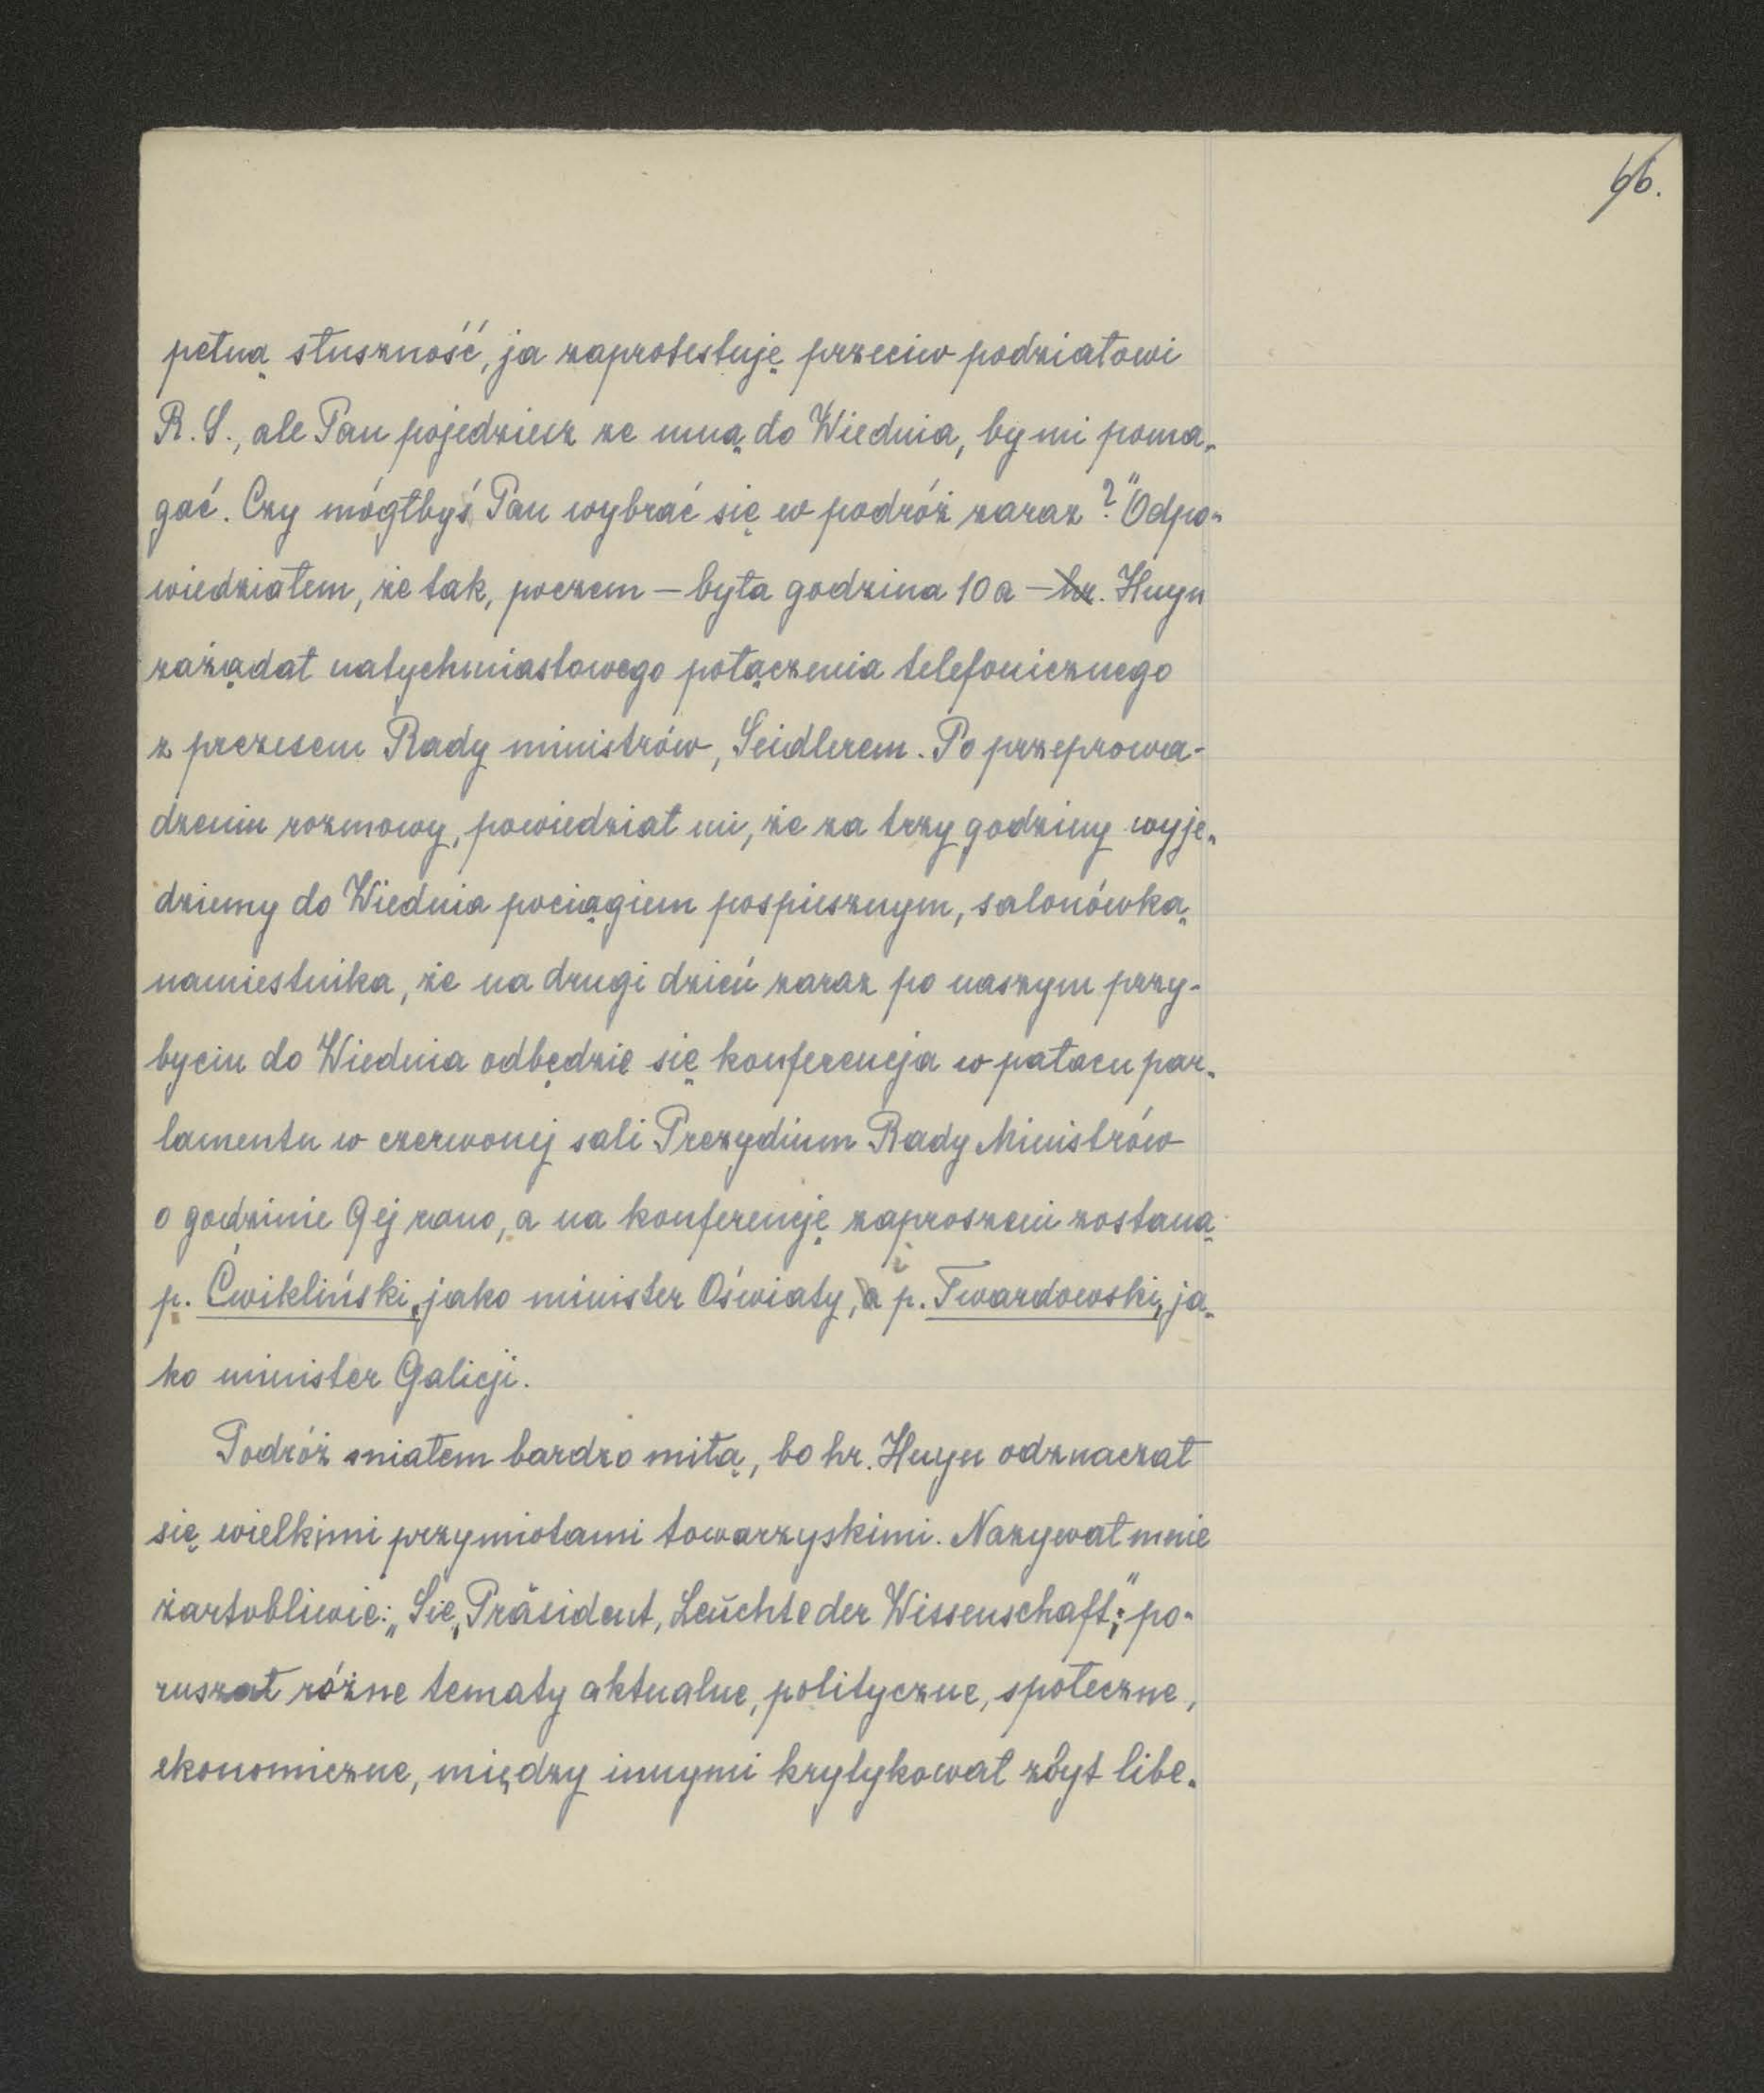 66.
pełną słuszność, ja zaprotestuję przeciw podziałowi
R. S., ale Pan pojedziesz ze mną do Wiednia, by mi poma-
gać. Czy mógłbyś Pan wybrać się w podróż zaraz?" Odpo-
wiedziałem, że tak, poczem — była godzina 10a — hr. Huyn
zażądał natychmiastowego połączenia telefonicznego
z prezesem Rady ministrów, Seidlerem. Po przeprowa-
dzeniu rozmowy, powiedział mi, że za trzy godziny wyje-
dziemy do Wiednia pociągiem pospiesznym, salonówką
namiestnika, że na drugi dzień zaraz po naszym przy-
byciu do Wiednia odbędzie się konferencja w pałacu par-
lamentu w czerwonej sali Prezydium Rady Ministrów
o godzinie 9ej rano, a na konferencję zaproszeni zostaną
p. Ćwikliński, jako minister Oświaty, i p. Twardowski, ja-
ko minister Galicji.
Podróż miałem bardzo miłą, bo hr. Huyn odznaczał
się wielkimi przymiotami towarzyskimi. Nazywał mnie
żartobliwie: „Sie, Präsident, Leuchte der Wissenschaft;" po-
ruszał różne tematy aktualne, polityczne, społeczne,
ekonomiczne, między innymi krytykował zbyt libe-